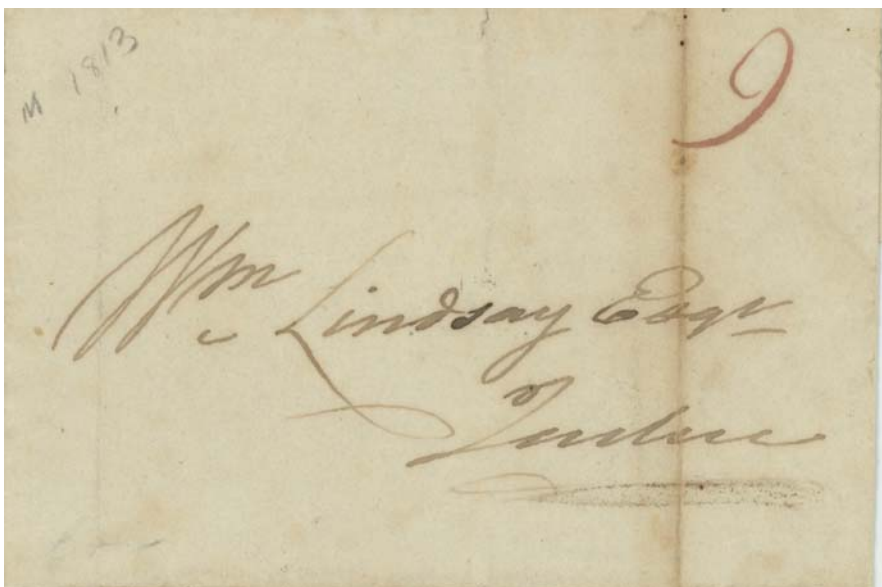 M 1813
9
Wm Lindsay Esqr
Quebec